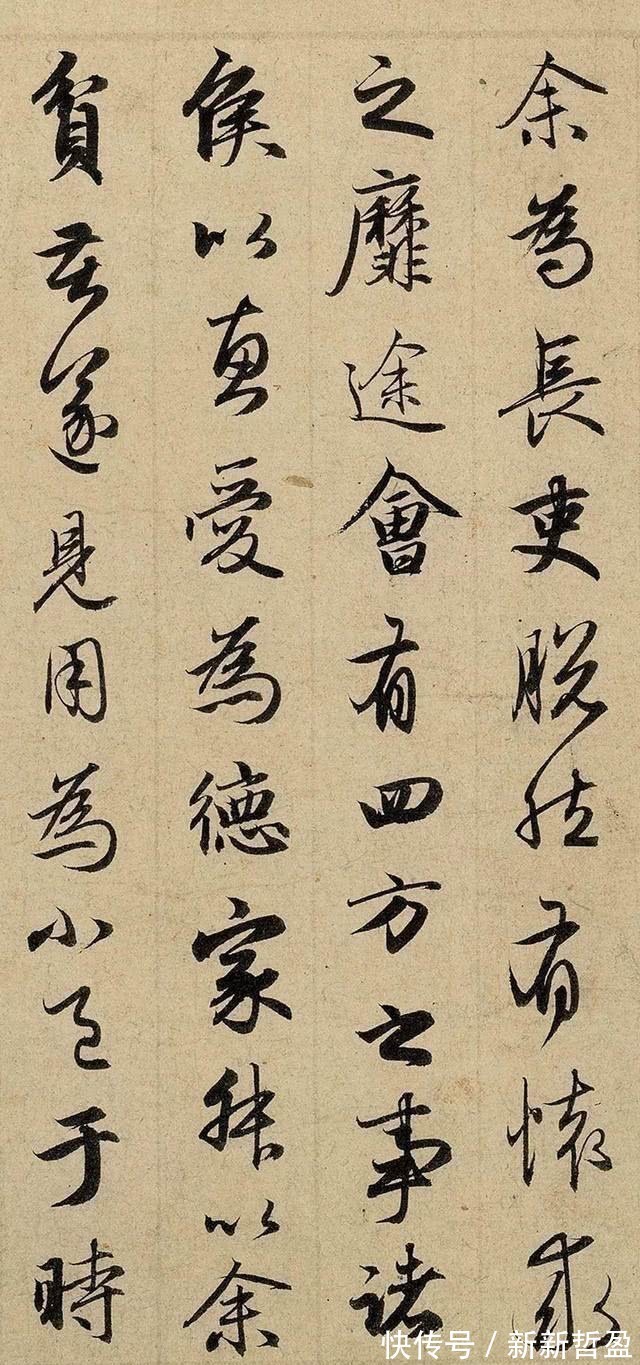 余為長吏脫然有懷求
之靡途會有四方之事諸
侯以惠愛為德家叔以余
貧苦遂見用為小邑于時
快传号 / 新新哲盈